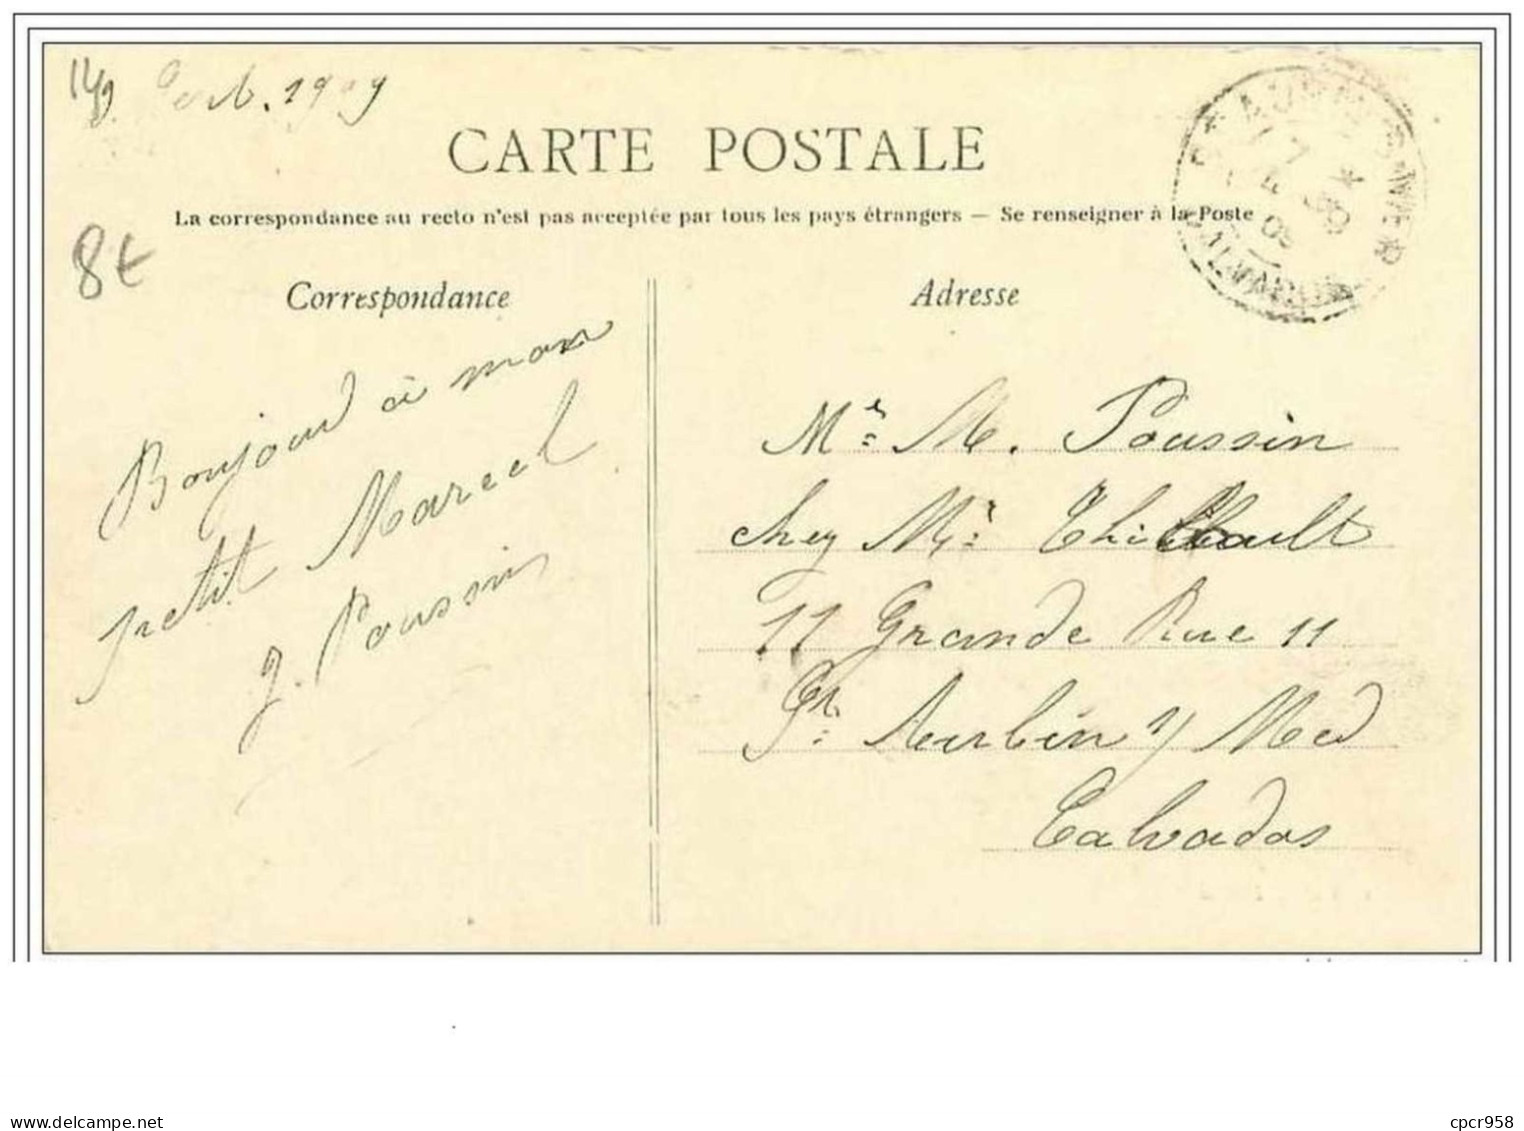 1909
CARTE POSTALE
La correspondance au recto n'est pas acceptée par tous les pays étrangers — Se renseigner à la Poste
8€
Correspondance
Bonjour à mon
petit Marcel
J. Poussin
Adresse
M. Poussin
chez Thibault
11 Grande Rue 11
St Aubin s/ Med
Calvados
delcampe.net
cpcr958